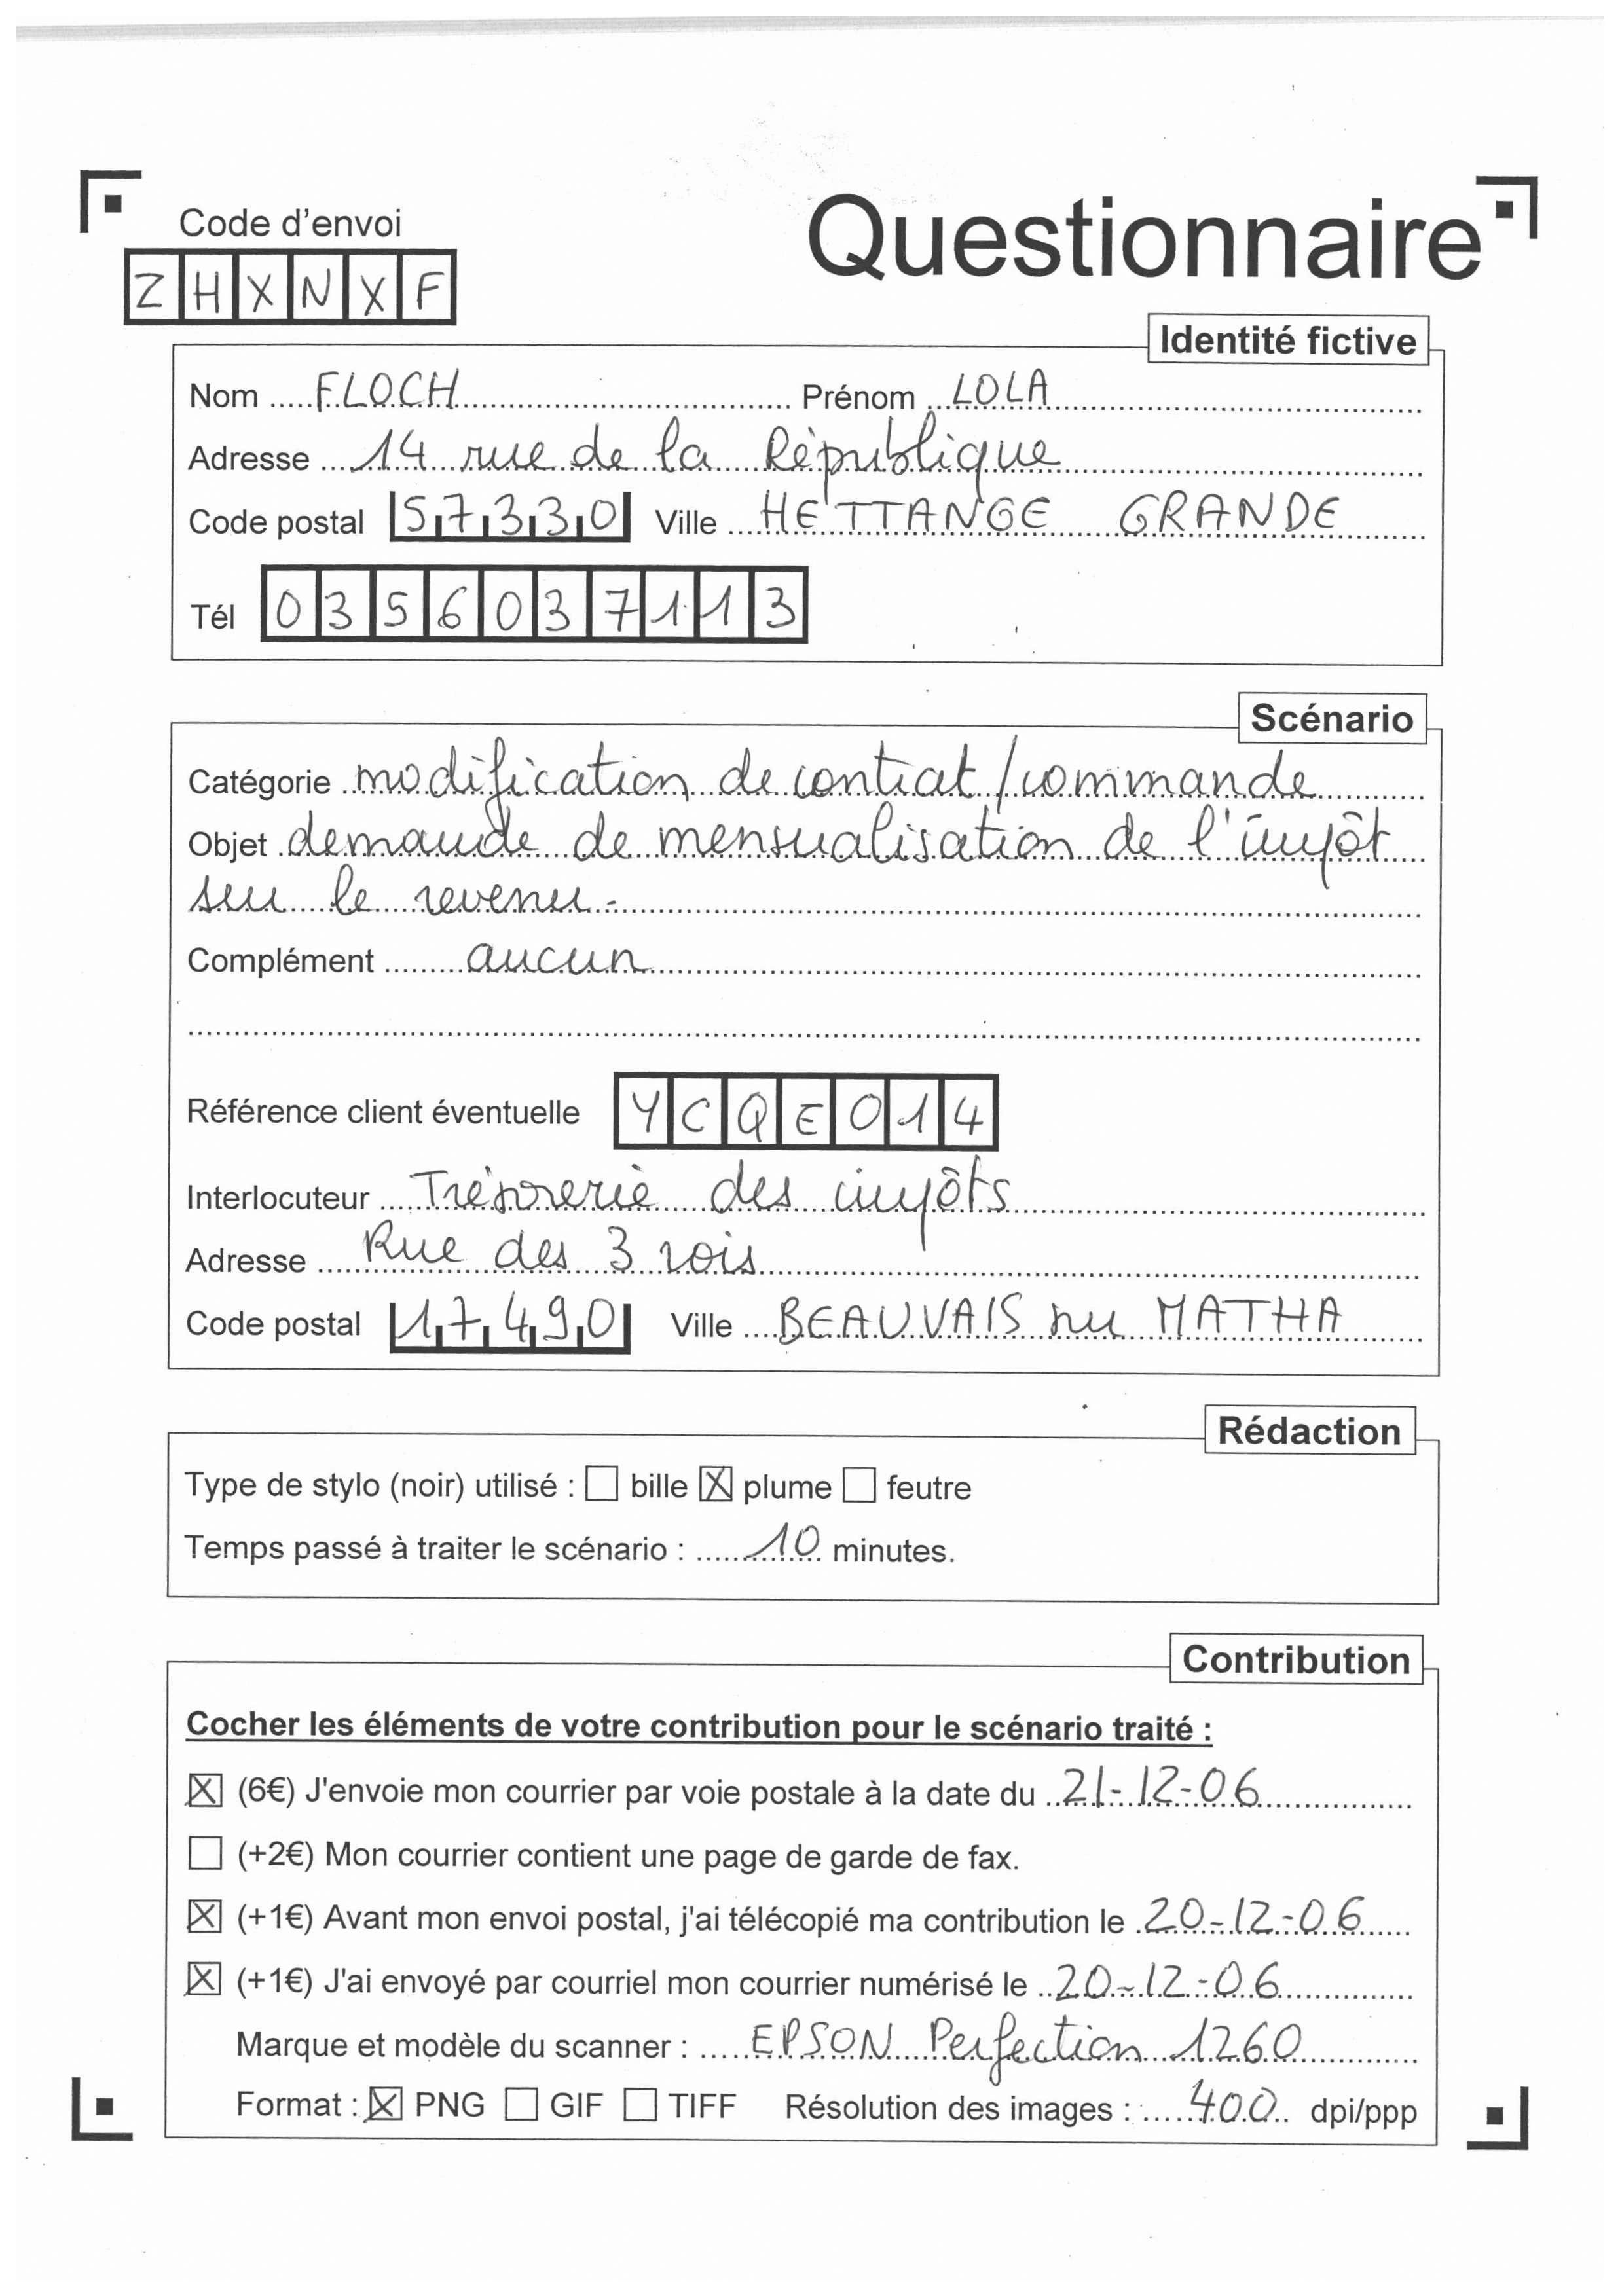 Code d'envoi
Questionnaire
ZHXNXF
Identité fictive
Nom FLOCH Prénom LOLA
Adresse 14 rue de la République
Code postal 57330 Ville HETTANGE GRANDE
Tél 0356037113
Scénario
Catégorie modification de contrat/commande
Objet demande de mensualisation de l'impôt
sur le revenu.
Complément aucun
Référence client éventuelle YCQE014
Interlocuteur Trésorerie des impôts
Adresse Rue des 3 rois
Code postal 17490 Ville BEAUVAIS sur MATHA
Rédaction
Type de stylo (noir) utilisé : ☐ bille ☒ plume ☐ feutre
Temps passé à traiter le scénario : 10 minutes.
Contribution
Cocher les éléments de votre contribution pour le scénario traité :
☒ (6€) J'envoie mon courrier par voie postale à la date du 21-12-06
☐ (+2€) Mon courrier contient une page de garde de fax.
☒ (+1€) Avant mon envoi postal, j'ai télécopié ma contribution le 20-12-06
☒ (+1€) J'ai envoyé par courriel mon courrier numérisé le 20-12-06
Marque et modèle du scanner : EPSON Perfection 1260
Format : ☒ PNG ☐ GIF ☐ TIFF Résolution des images : 400 dpi/ppp